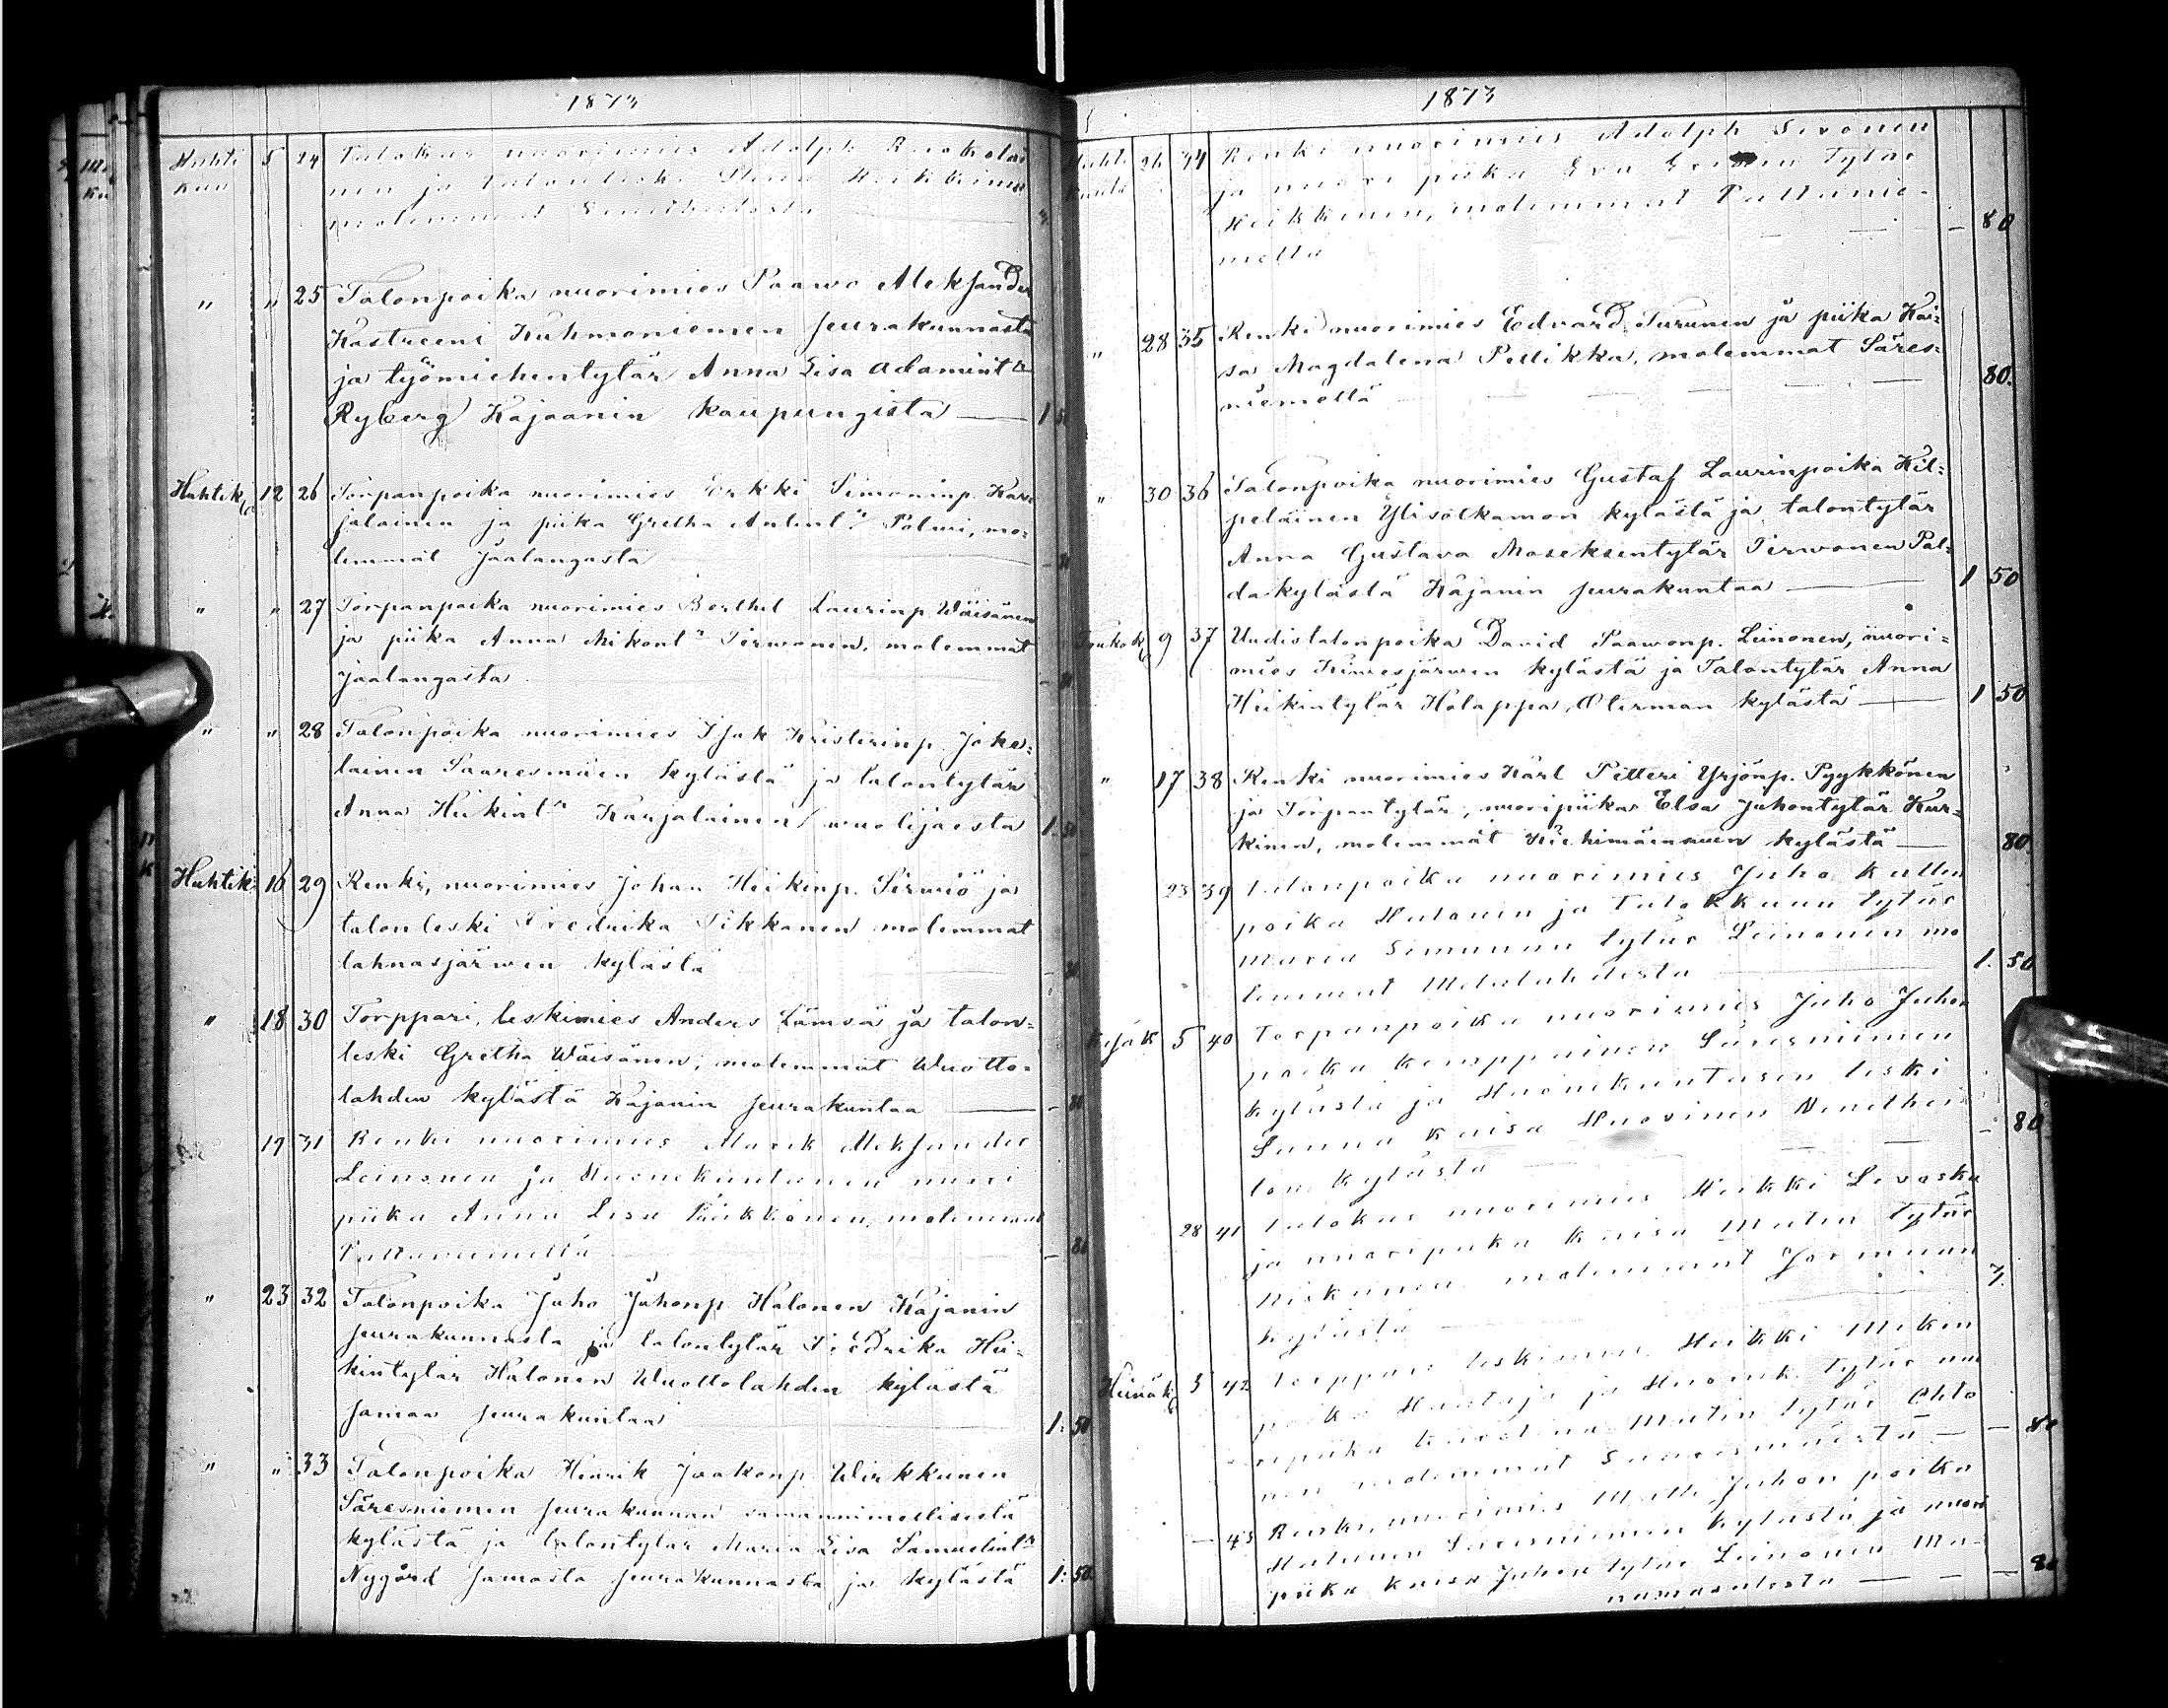 1873
Huhti 5 24 Talokas nuorimies Adolph
kuu nen ja talonleski Stina Heikkinen
molemmat
" " 25 Talonpoika nuorimies Paawo Aleksander
Kastreeni Kuhmoniemen seurakunnasta
ja työmiehentytär Anna Lisa Adamint:r
Ryberg Kajaanin kaupungista — 1 50
Huhtik. 12 26 Torpanpoika nuorimies Erkki Simoninp. Kar=
jalainen ja piika Gretha Antint:r Polvi, mo=
lemmat Jaalangasta — 80
" " 27 Torpanpoika nuorimies Berthel Laurinp. Wäisänen
ja piika Anna Mikont:r Tirwonen, molemmat
Jaalangasta. — 80
" " 28 Talonpoika nuorimies Isak Kristerinp. Joke=
lainen Saaresmäen kylästä ja talontytär
Anna Heikint:r Karjalainen wuolijoesta 1. 50
Huhtik: 16 29 Renki, nuorimies Johan Heikinp. Sirwiö ja
talonleski Fredrika Tikkanen molemmat
lahnasjärwen kylästä — 80
" 18 30 Torppari, leskimies Anders Lämsä ja talon=
leski Gretha Wäisänen, molemmat Wuotto=
lahden kylästä Kajanin seurakuntaa — 80
19 31 Renki nuorimies Mark Aleksander
Leinonen ja Huonekuntanen nuori
piika Anna Lisa molemmat
Paltaniemeltä — 80
" 23 32 Talonpoika Juho Juhonp. Halonen Kajanin
seurakunnasta ja talontytär Fredrika Hei=
kintytär Halonen Wuottolahden kylästä
samaa seurakuntaa 1: 50
" " 33 Talonpoika Henrik Jaakonp. Wirkkunen
Säresniemen seurakunnan samannimellisestä
kylästä ja talontytär Maria Lisa Samuelint:r
Nygård samasta seurakunnasta ja kylästä 1: 50
1873
Huhti 26 34 Renki nuorimies Adolph Sivonen
kuuta ja nuori piika Eva Tytär
Heikkinen, molemmat Paltanie-
meltä — 80
" 28 35 Renki nuorimies Edvard Turunen ja piika Kai=
sa Magdalena Pellikka, molemmat Säres=
niemeltä — 80.
" 30 36 Talonpoika nuorimies Gustaf Laurinpoika Kil=
peläinen Ylisotkamon kylästä ja talontytär
Anna Gustava Moseksentytär Tirwonen Pal=
dakylästä Kajanin seurakuntaa — 1 50
Toukok. 9 37 Uudistalonpoika David Paawonp. Leinonen, nuori=
mies Kiwesjärwen kylästä ja Talontytär Anna
Heikintytär Holappa, Oterman kylästä — 1 50
" 17 38 Renki nuorimies Karl Petteri Yrjönp. Pyykkönen
ja Torpantytär, nuoripiika Elsa Juhontytär Kur=
kinen, molemmat kylästä — 80
23 39 Talonpoika nuorimies Juho Kallen
poika Hulonen ja Talokkaan tytär
Maria Simunan tytär Leinonen mo
lemmat Melalahdesta 1. 50
Kesäk 5 40 Torpanpoika nuorimies Juho Juhon
poika Kemppainen Säresniemen
kylästä ja Huonekuntasen leski
Sanna Kaisa Huovinen
lon kylästä — 80
28 41 Talokas nuorimies Heikki Levoska
ja nuoripiika Kaisa Matin Tytär
Kiskinen molemmat Jormuan
kylästä 3.
Heinäk 5 42 Torppari leskimies Heikki Mikon
poika ja Huonek. tytär nuo
ripiika Karolina Matin tytär Ohto
nen molemmat Saaresmäestä — 80
— 43 Renki, nuorimies Matti Juhon poika
Halonen Säresniemen kylästä ja nuori
piika Kaisa Juhon tytär Leinonen Ma-
namansalosta — 80